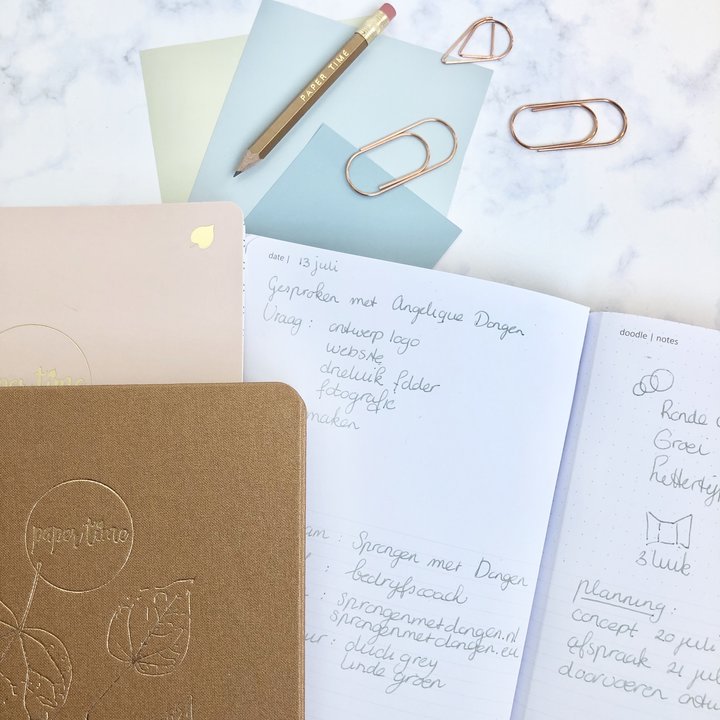 PAPER TIME
date | 13 juli
Gesproken met Angelique Dongen
Vraag : ontwerp logo
website
drieluik folder
fotografie
maken
: Sprongen met Dongen
bedrijfscoach
: sprongenmetdongen.nl
sprongenmetdongen.eu
: duck grey
linde groen
doodle | notes
Ronde
Groei
letterty
3 luik
planning :
concept 20 juli
afspraak 21 jul
doorvoeren
paper time
time